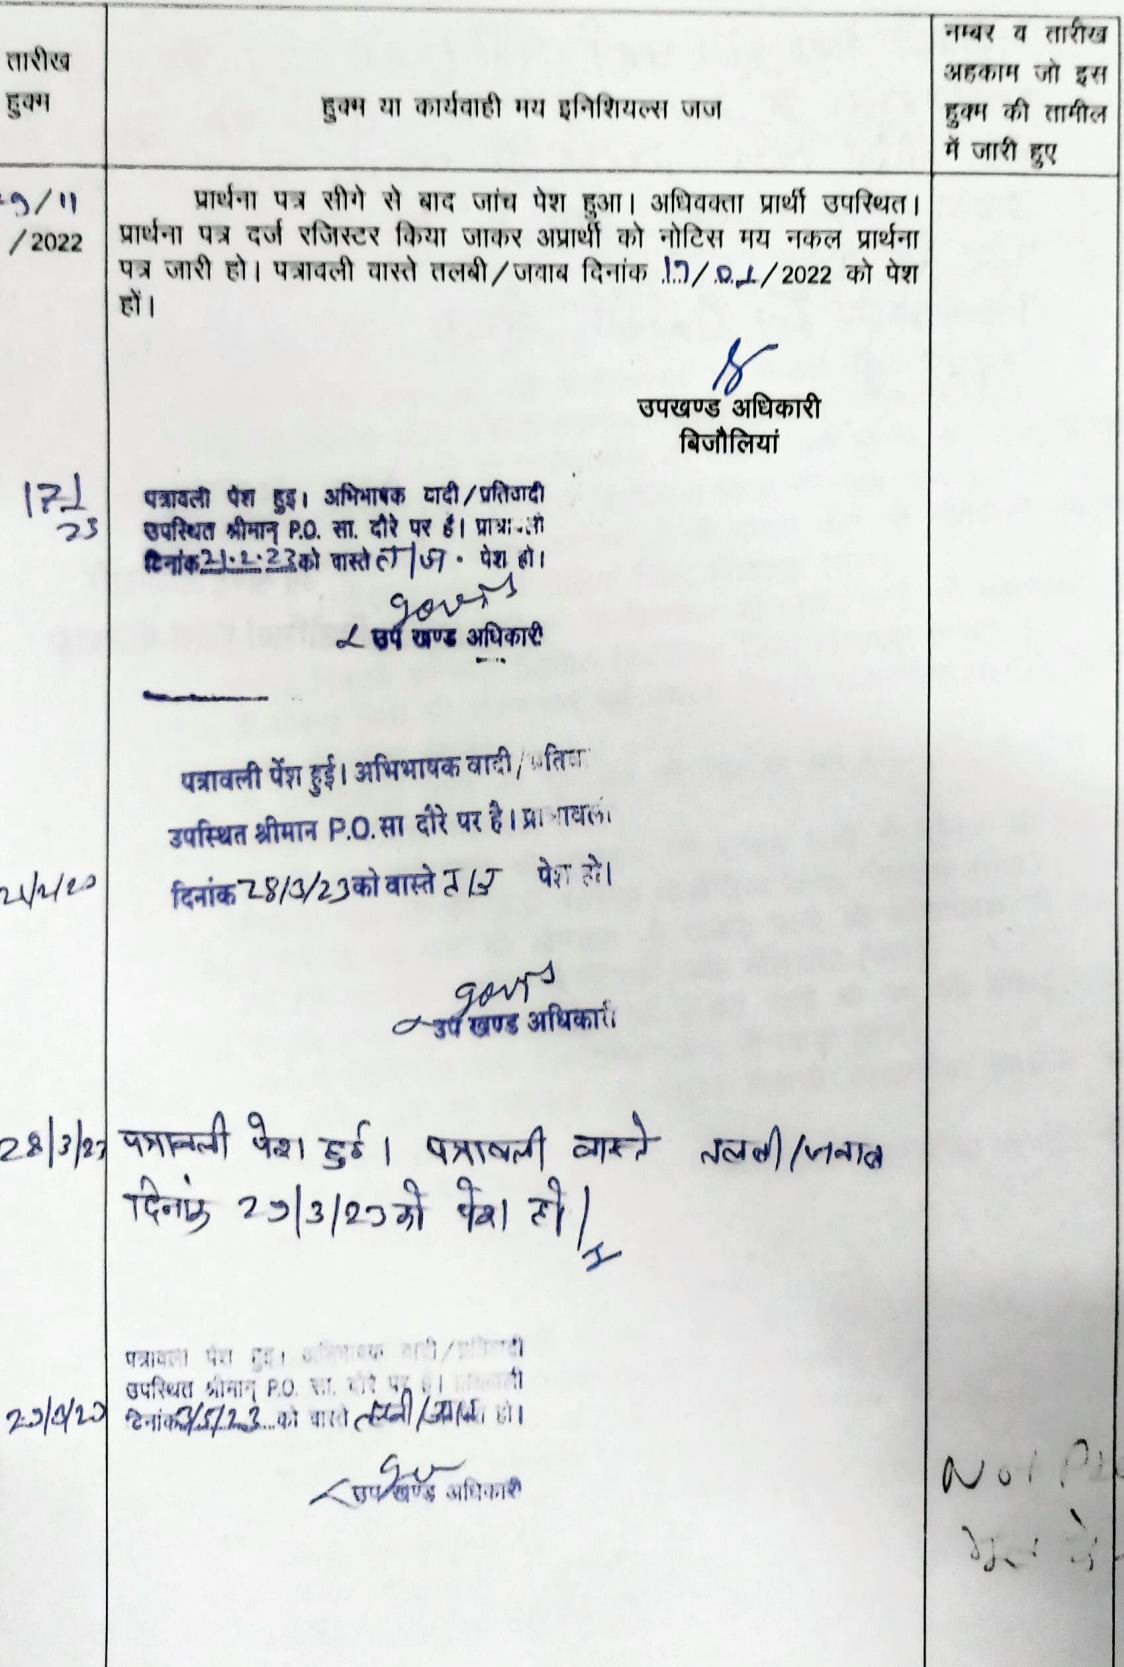 तारीख
हुक्म
हुक्म या कार्यवाही मय इनिशियल्स जज
नम्बर व तारीख
अहकाम जो इस
हुक्म की तामील
में जारी हुए
9/11
/2022
प्रार्थना पत्र सीगे से बाद जांच पेश हुआ। अधिवक्ता प्रार्थी उपस्थित।
प्रार्थना पत्र दर्ज रजिस्टर किया जाकर अप्रार्थी को नोटिस मय नकल प्रार्थना
पत्र जारी हो। पत्रावली वास्ते तलबी/जवाब दिनांक 17/01/2022 को पेश
हों।
उपखण्ड अधिकारी
बिजौलियां
17/1
23
पत्रावली पेश हुइ। अभिभाषक वादी/प्रतिवादी
उपस्थित श्रीमान् P.O. सा. दौरे पर है।
दिनांक 21.2.23 को वास्ते त/ज. पेश हो।
उप खण्ड अधिकारी
पत्रावली पेंश हुई। अभिभाषक वादी/
उपस्थित श्रीमान P.O. सा दौरे पर है।
दिनांक 28/3/23 को वास्ते त/ज पेश हो।
उप खण्ड अधिकारी
28/3/23
पत्रावली पेश हुई। पत्रावली वास्ते तलबी/जवाब
दिनांक 29/3/23 को पेश हो।
पत्रावली पेश हुइ। अभिभाषक वादी/प्रतिवादी
उपस्थित श्रीमान् P.O. सा. दौरे पर है।
29/3/23
दिनांक 3/5/23 को वास्ते तलबी/जवाब हो।
उप खण्ड अधिकारी
Not